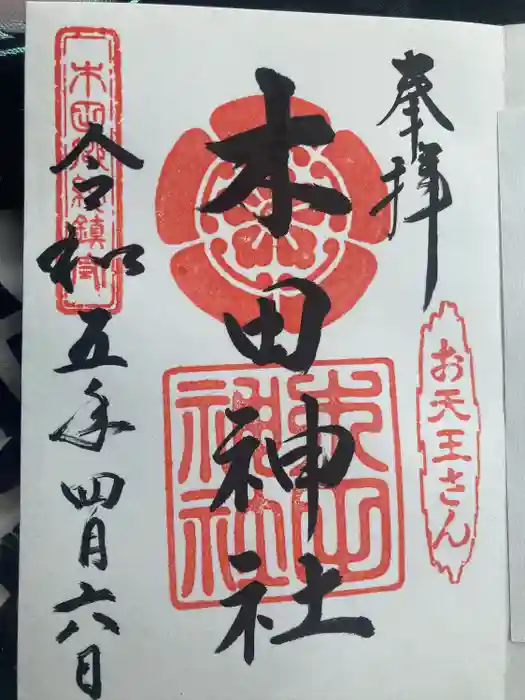 奉拝
お天王さん
木田神社
木田郷総鎮守
令和五年四月六日
木田
神社